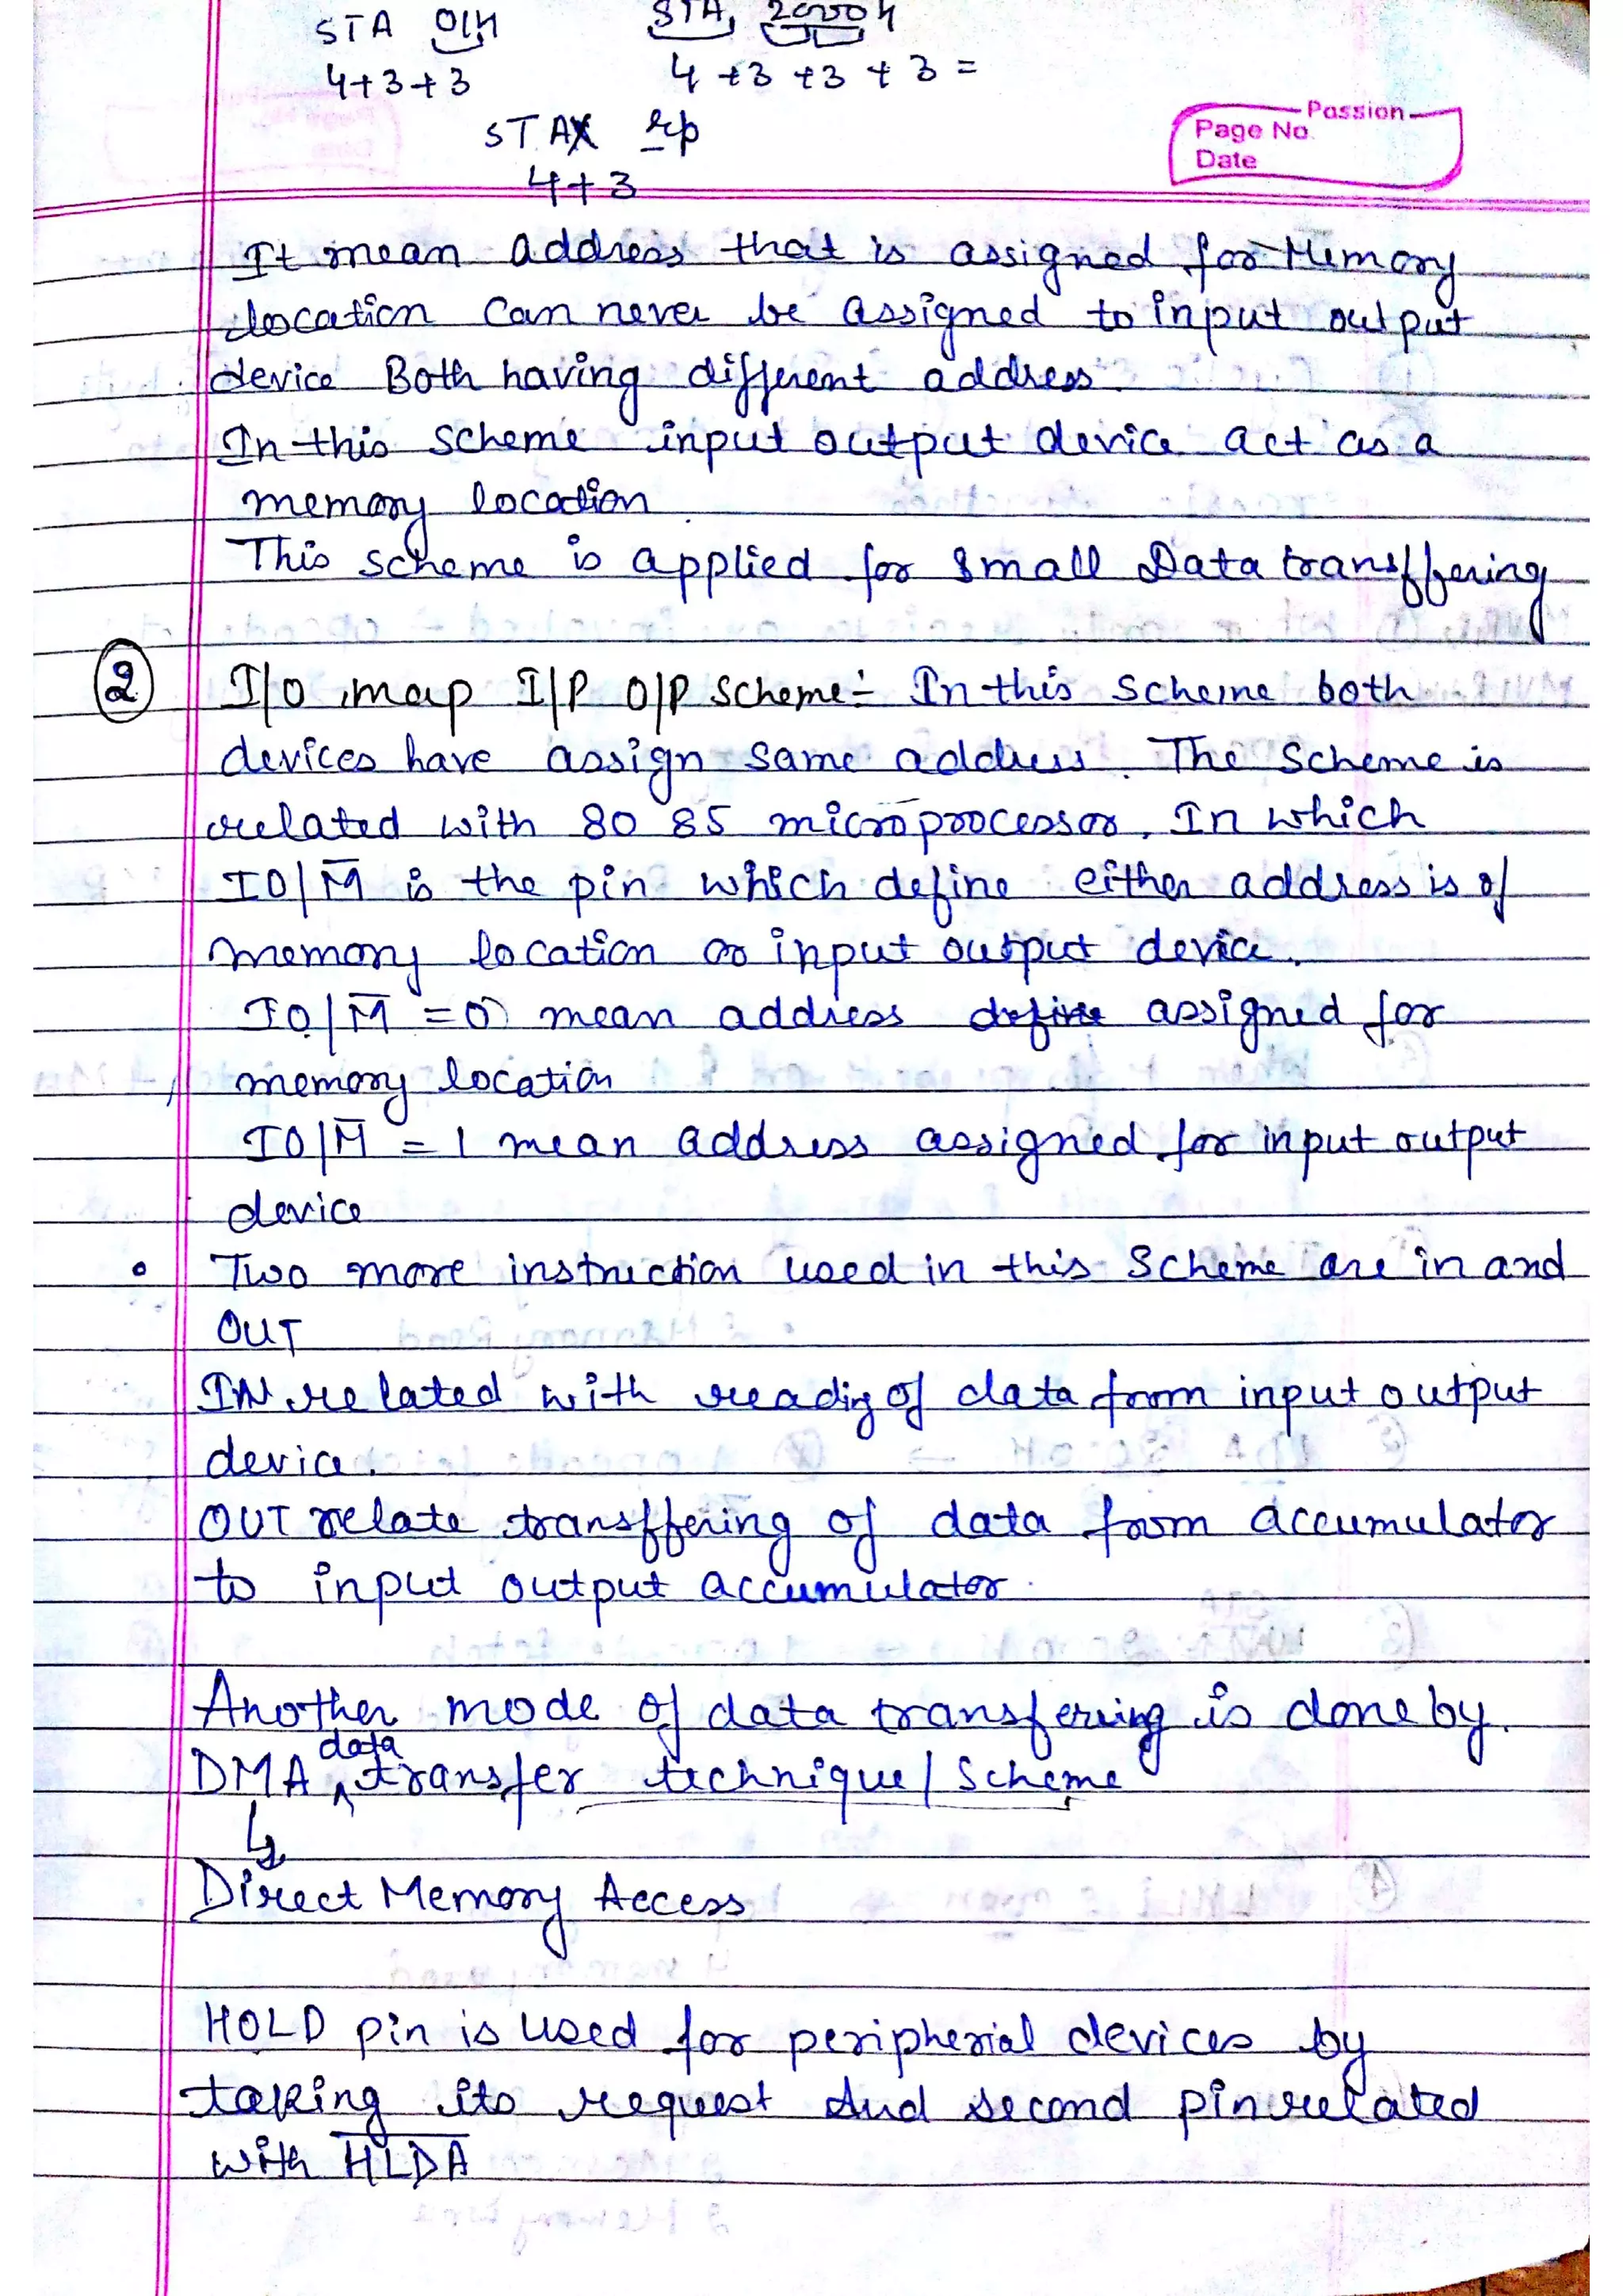 STA 01H STA, 2000H
4+3+3 4+3+3+3=
STAX rp
4+3
Passion
Page No.
Date
It mean address that is assigned for Memory
location can never be assigned to input output
device Both having different address.
In this scheme input output device act as a
memory location.
This scheme is applied for small Data transffering
② I/O map I/P O/P scheme:- In this scheme both
devices have assign same address. The Scheme is
related with 80 85 microprocessor. In which
IO/M̅ is the pin which define either address is of
memory location or input output device.
IO/M̅ = 0 mean address assigned for
memory location
IO/M̅ = 1 mean address assigned for input output
device
• Two more instruction used in this Scheme are in and
OUT
IN related with readig of data from input output
device.
OUT relate transffering of data from accumulator
to input output accumulator.
Another mode of data transfering is done by.
DMA data transfer technique/Scheme
↳
Direct Memory Access
HOLD pin is used for peripherial devices by
taking its request and second pin related
with H̅L̅D̅A̅